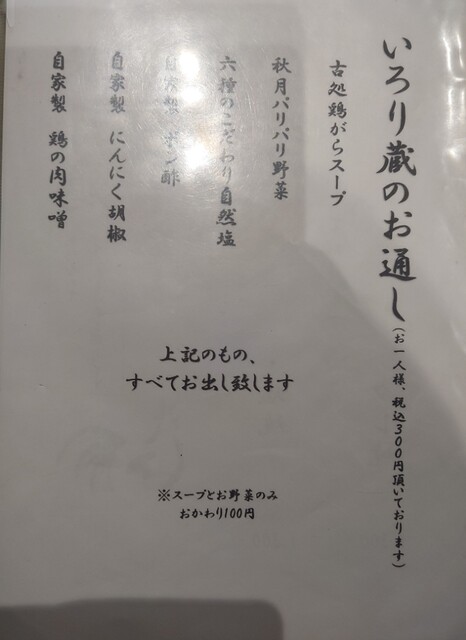 いろり蔵のお通し(お一人様、税込300円頂いております)
古処鶏がらスープ
秋月バリバリ野菜
六種のこだわり自然塩
自家製 ポン酢
自家製 にんにく胡椒
自家製 鶏の肉味噌
上記のもの、
すべてお出し致します
※スープとお野菜のみ
おかわり100円